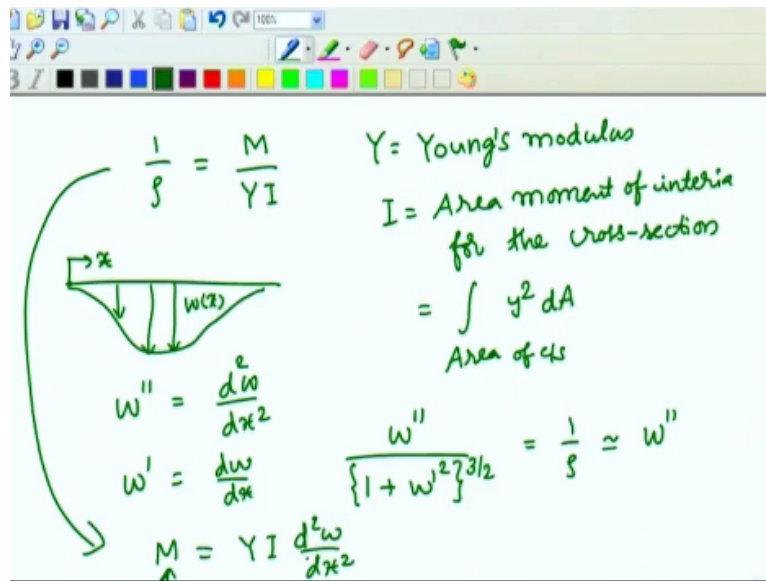 100%
B I
1/ρ = M/YI
Y = Young's modulus
I = Area moment of interia
for the cross-section
= ∫ y² dA
Area of c/s
→ x
w(x)
w'' = d²w/dx²
w' = dw/dx
w''/{1 + w'²}^3/2 = 1/ρ ≃ w''
M = YI d²w/dx²